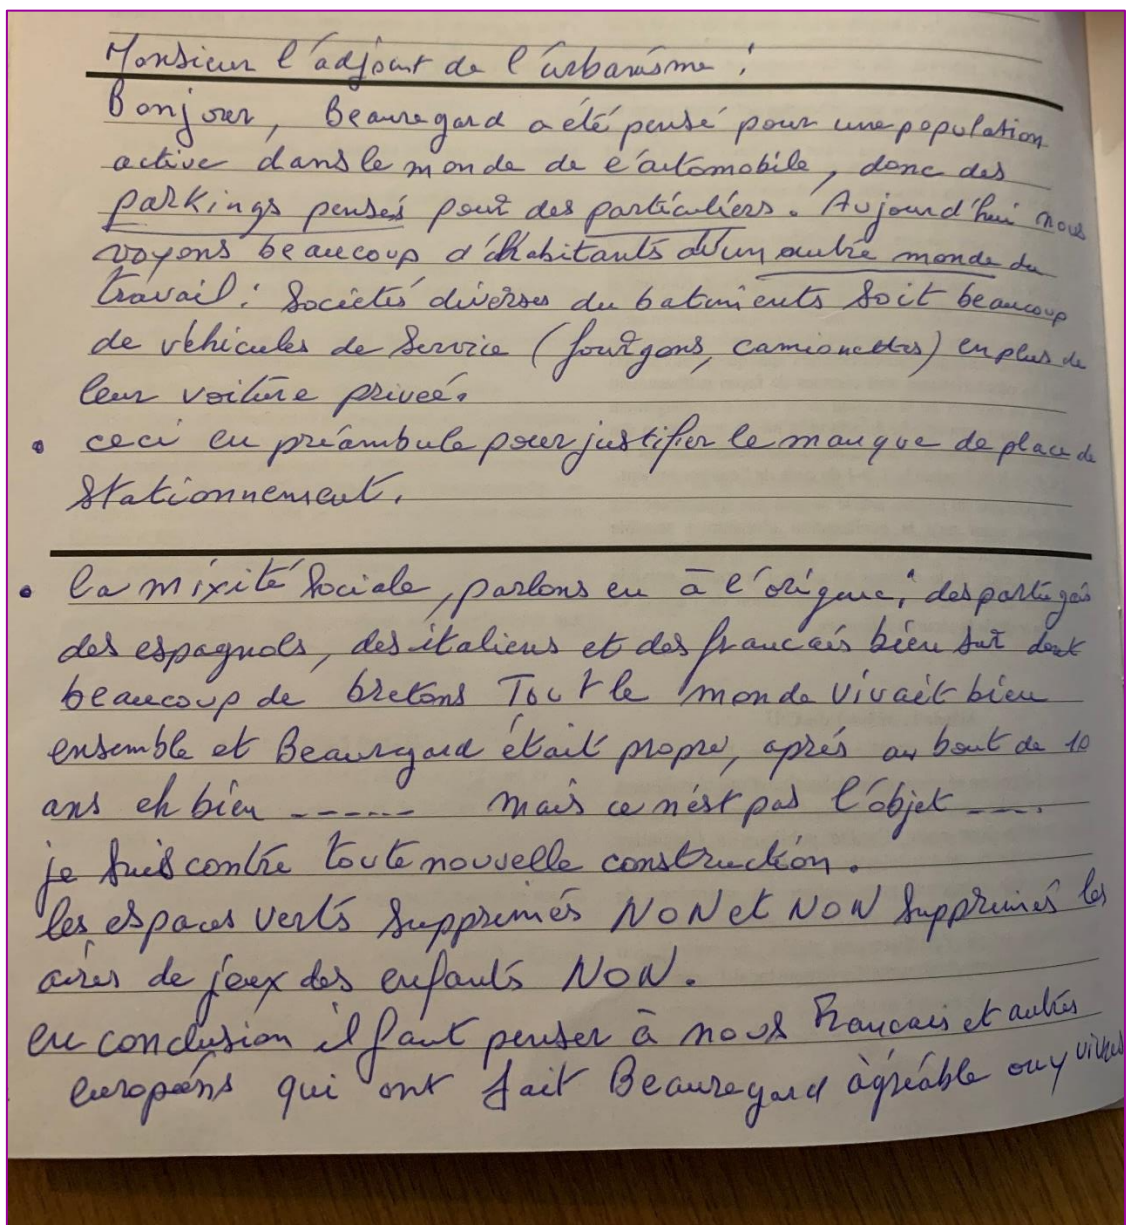 Monsieur l'adjoint de l'urbanisme :
Bonjour, Beauregard a été pensé pour une population
active dans le monde de l'automobile, donc des
parkings pensés pour des particuliers. Aujourd'hui nous
voyons beaucoup d'habitants d'un autre monde du
travail : Sociétés diverses du batiments soit beaucoup
de véhicules de Service (fourgons, camionettes) en plus de
leur voiture privée.
• ceci en préambule pour justifier le manque de place de
Stationnement.
• la mixité Sociale, parlons en à l'origine ; des portugais
des espagnols, des italiens et des francais bien sur dont
beaucoup de bretons Tout le monde vivait bien
ensemble et Beauregard était propre, aprés au bout de 10
ans eh bien ------ mais ce n'est pas l'objet ----.
je suis contre toute nouvelle construction.
les espaces verts Supprimés NON et NON Supprimés les
aires de jeux des enfants NON.
en conclusion il faut penser à nous Francais et autres
européens qui ont fait Beauregard agréable ou y vivre